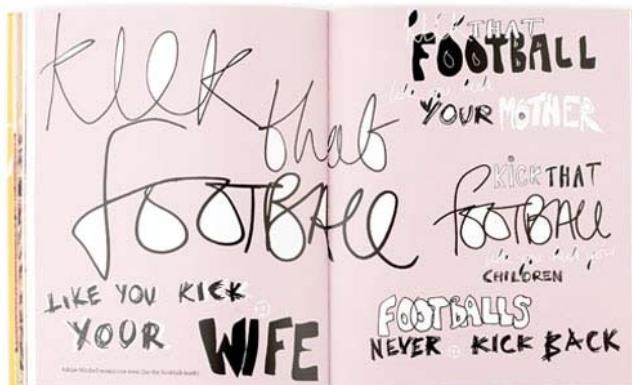 KICK
that
FOOTBALL
LIKE YOU KICK
YOUR WIFE
KICK THAT
FOOTBALL
like you kick
YOUR MOTHER
KICK THAT
FOOTBALL
like you kick your
CHILDREN
FOOTBALLS
NEVER KICK BACK